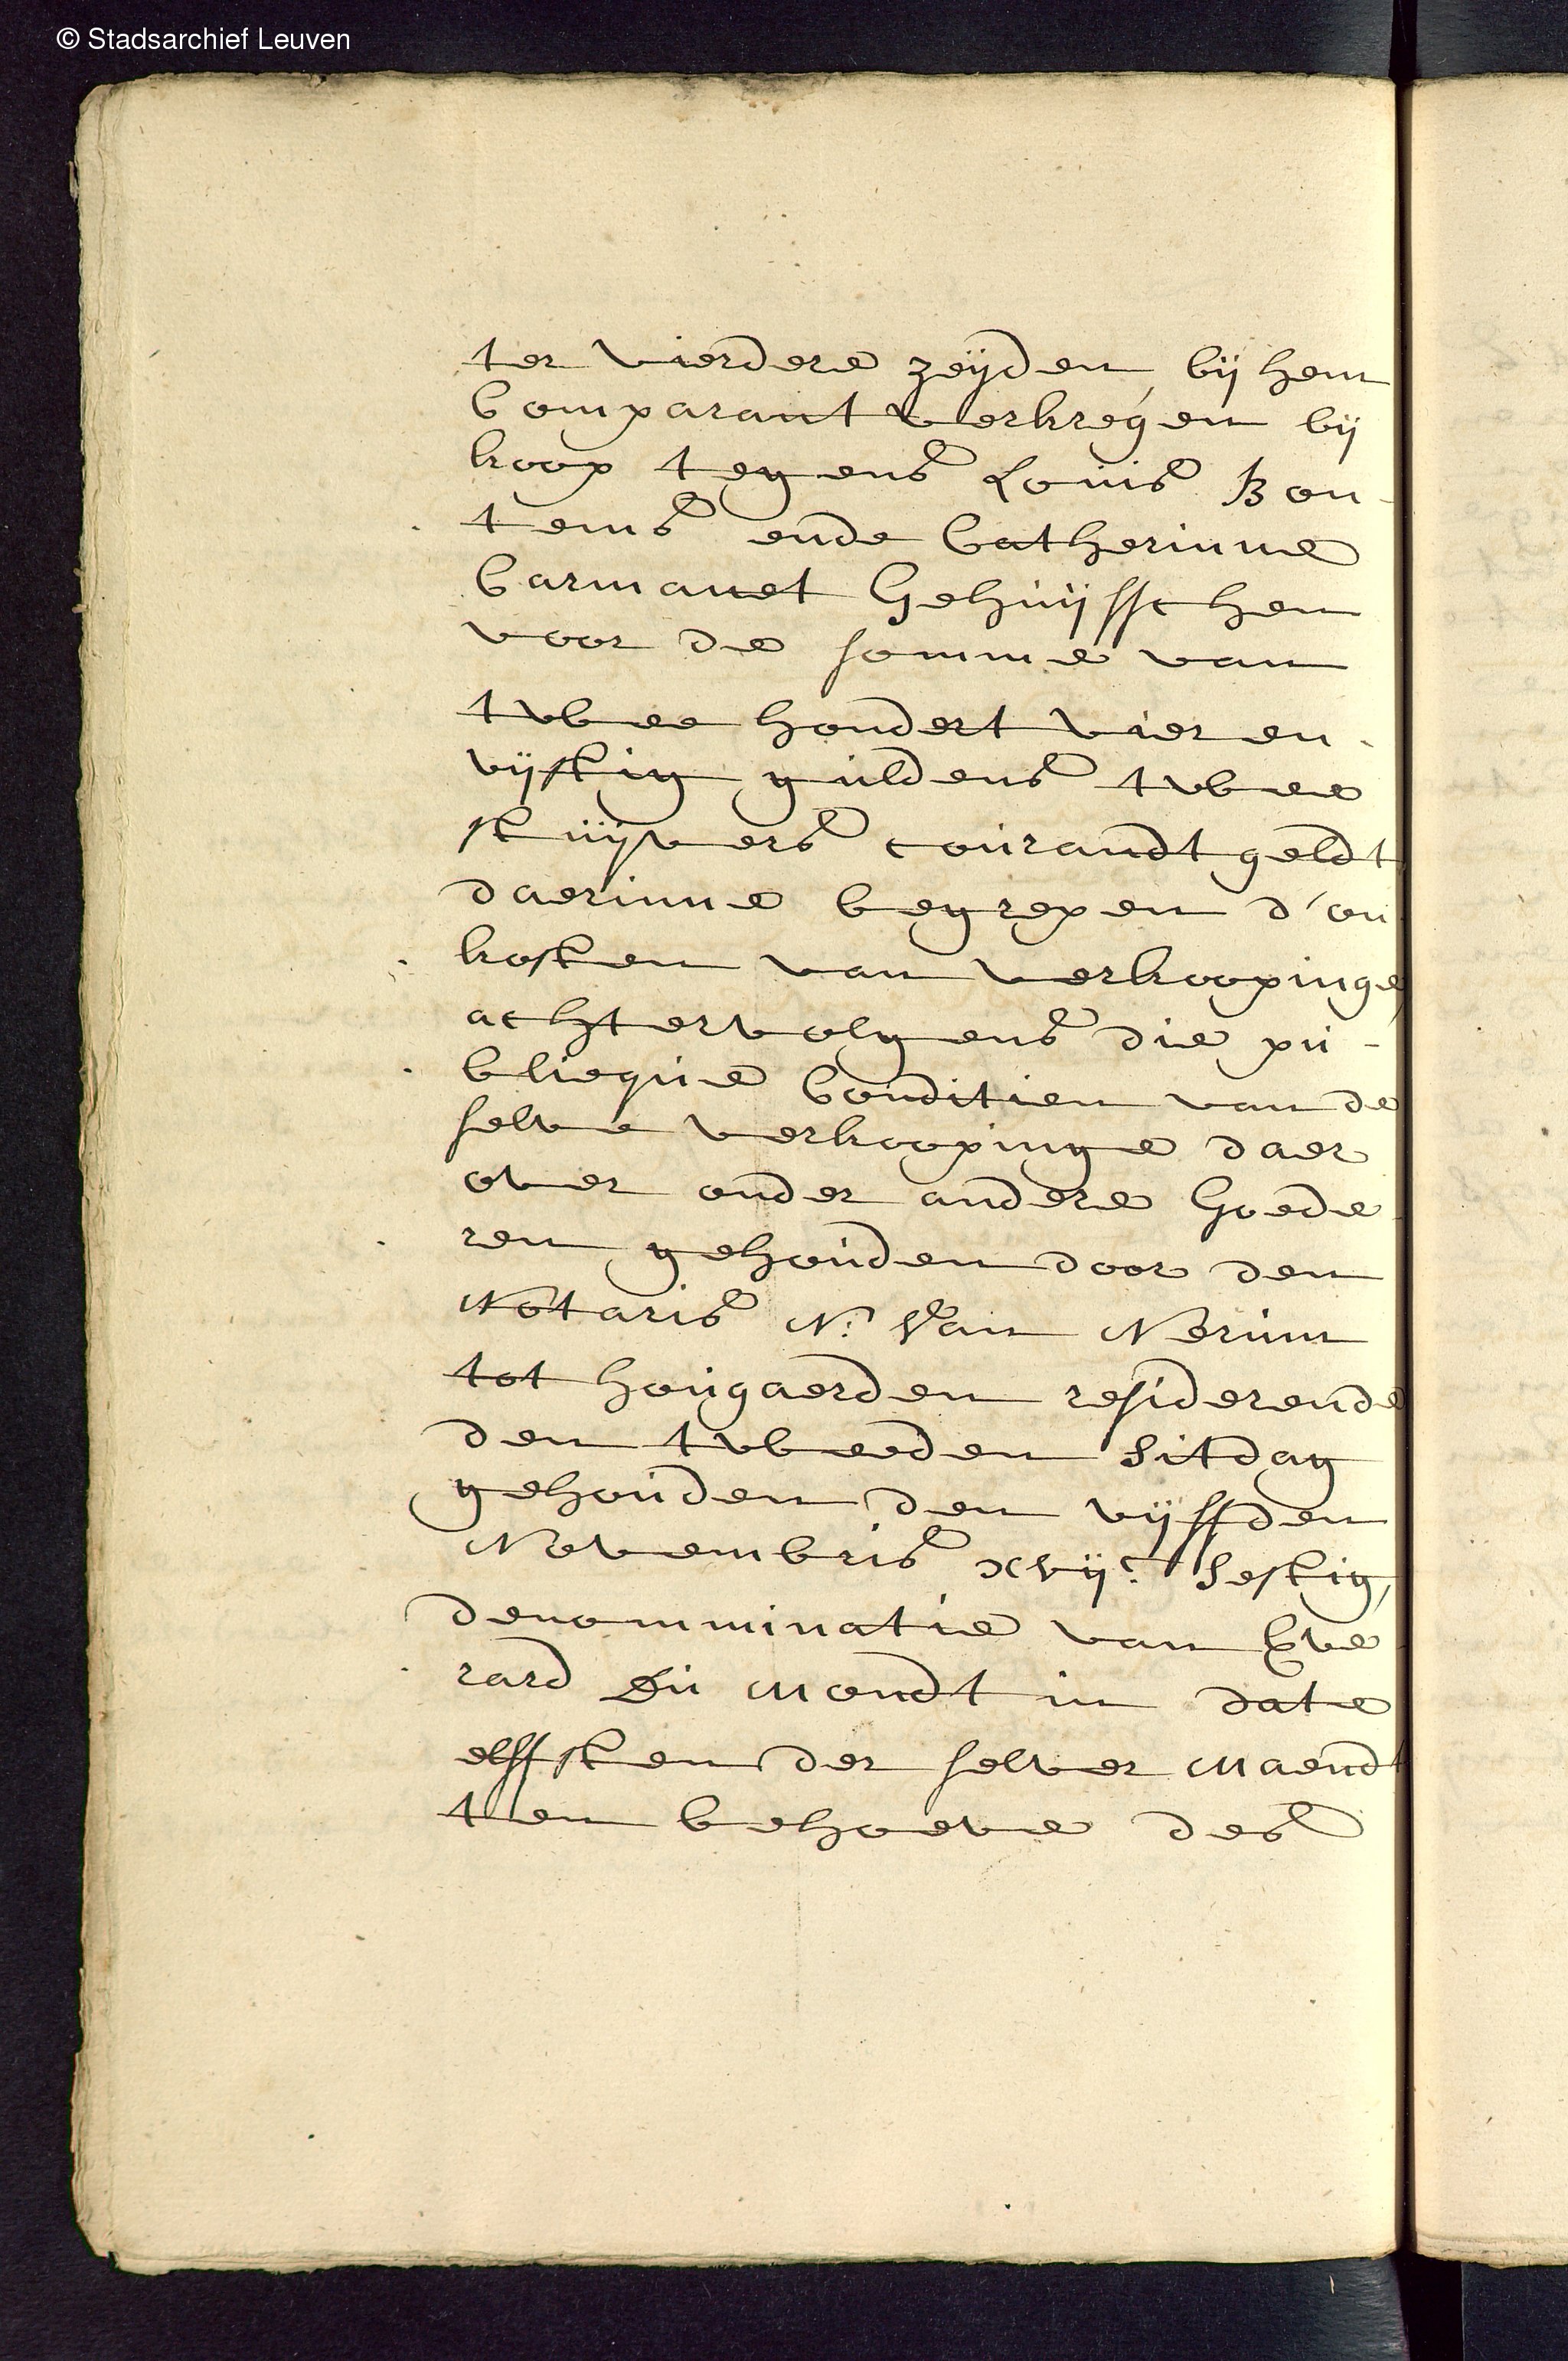 © Stadsarchief Leuven
ter vierdere zeÿden, bij hem
Comparant verkregen bij
koop tegens Louis Bon-
tems ende Catherinne
Carmanet Gehuijsschen
voor de somme van
twee hondert vier en-
vijftig guldens twee
stuijvers courandt geldt
daerinne begrepen d'on
kosten van verkoopinge
achtervolgens die pu-
blieque Conditien van de
selve verkoopinge daer
over onder andere Goede
ren gehouden door den
Notaris N: Van Nerum
tot hougaerden residerende
den tweeden Sitdag
gehouden den vijffden
Novembris xvijc. Sestig,
denomminatie van Eve
rard Du Mondt in date
elffsten der selver Maendt
ten behoeve des